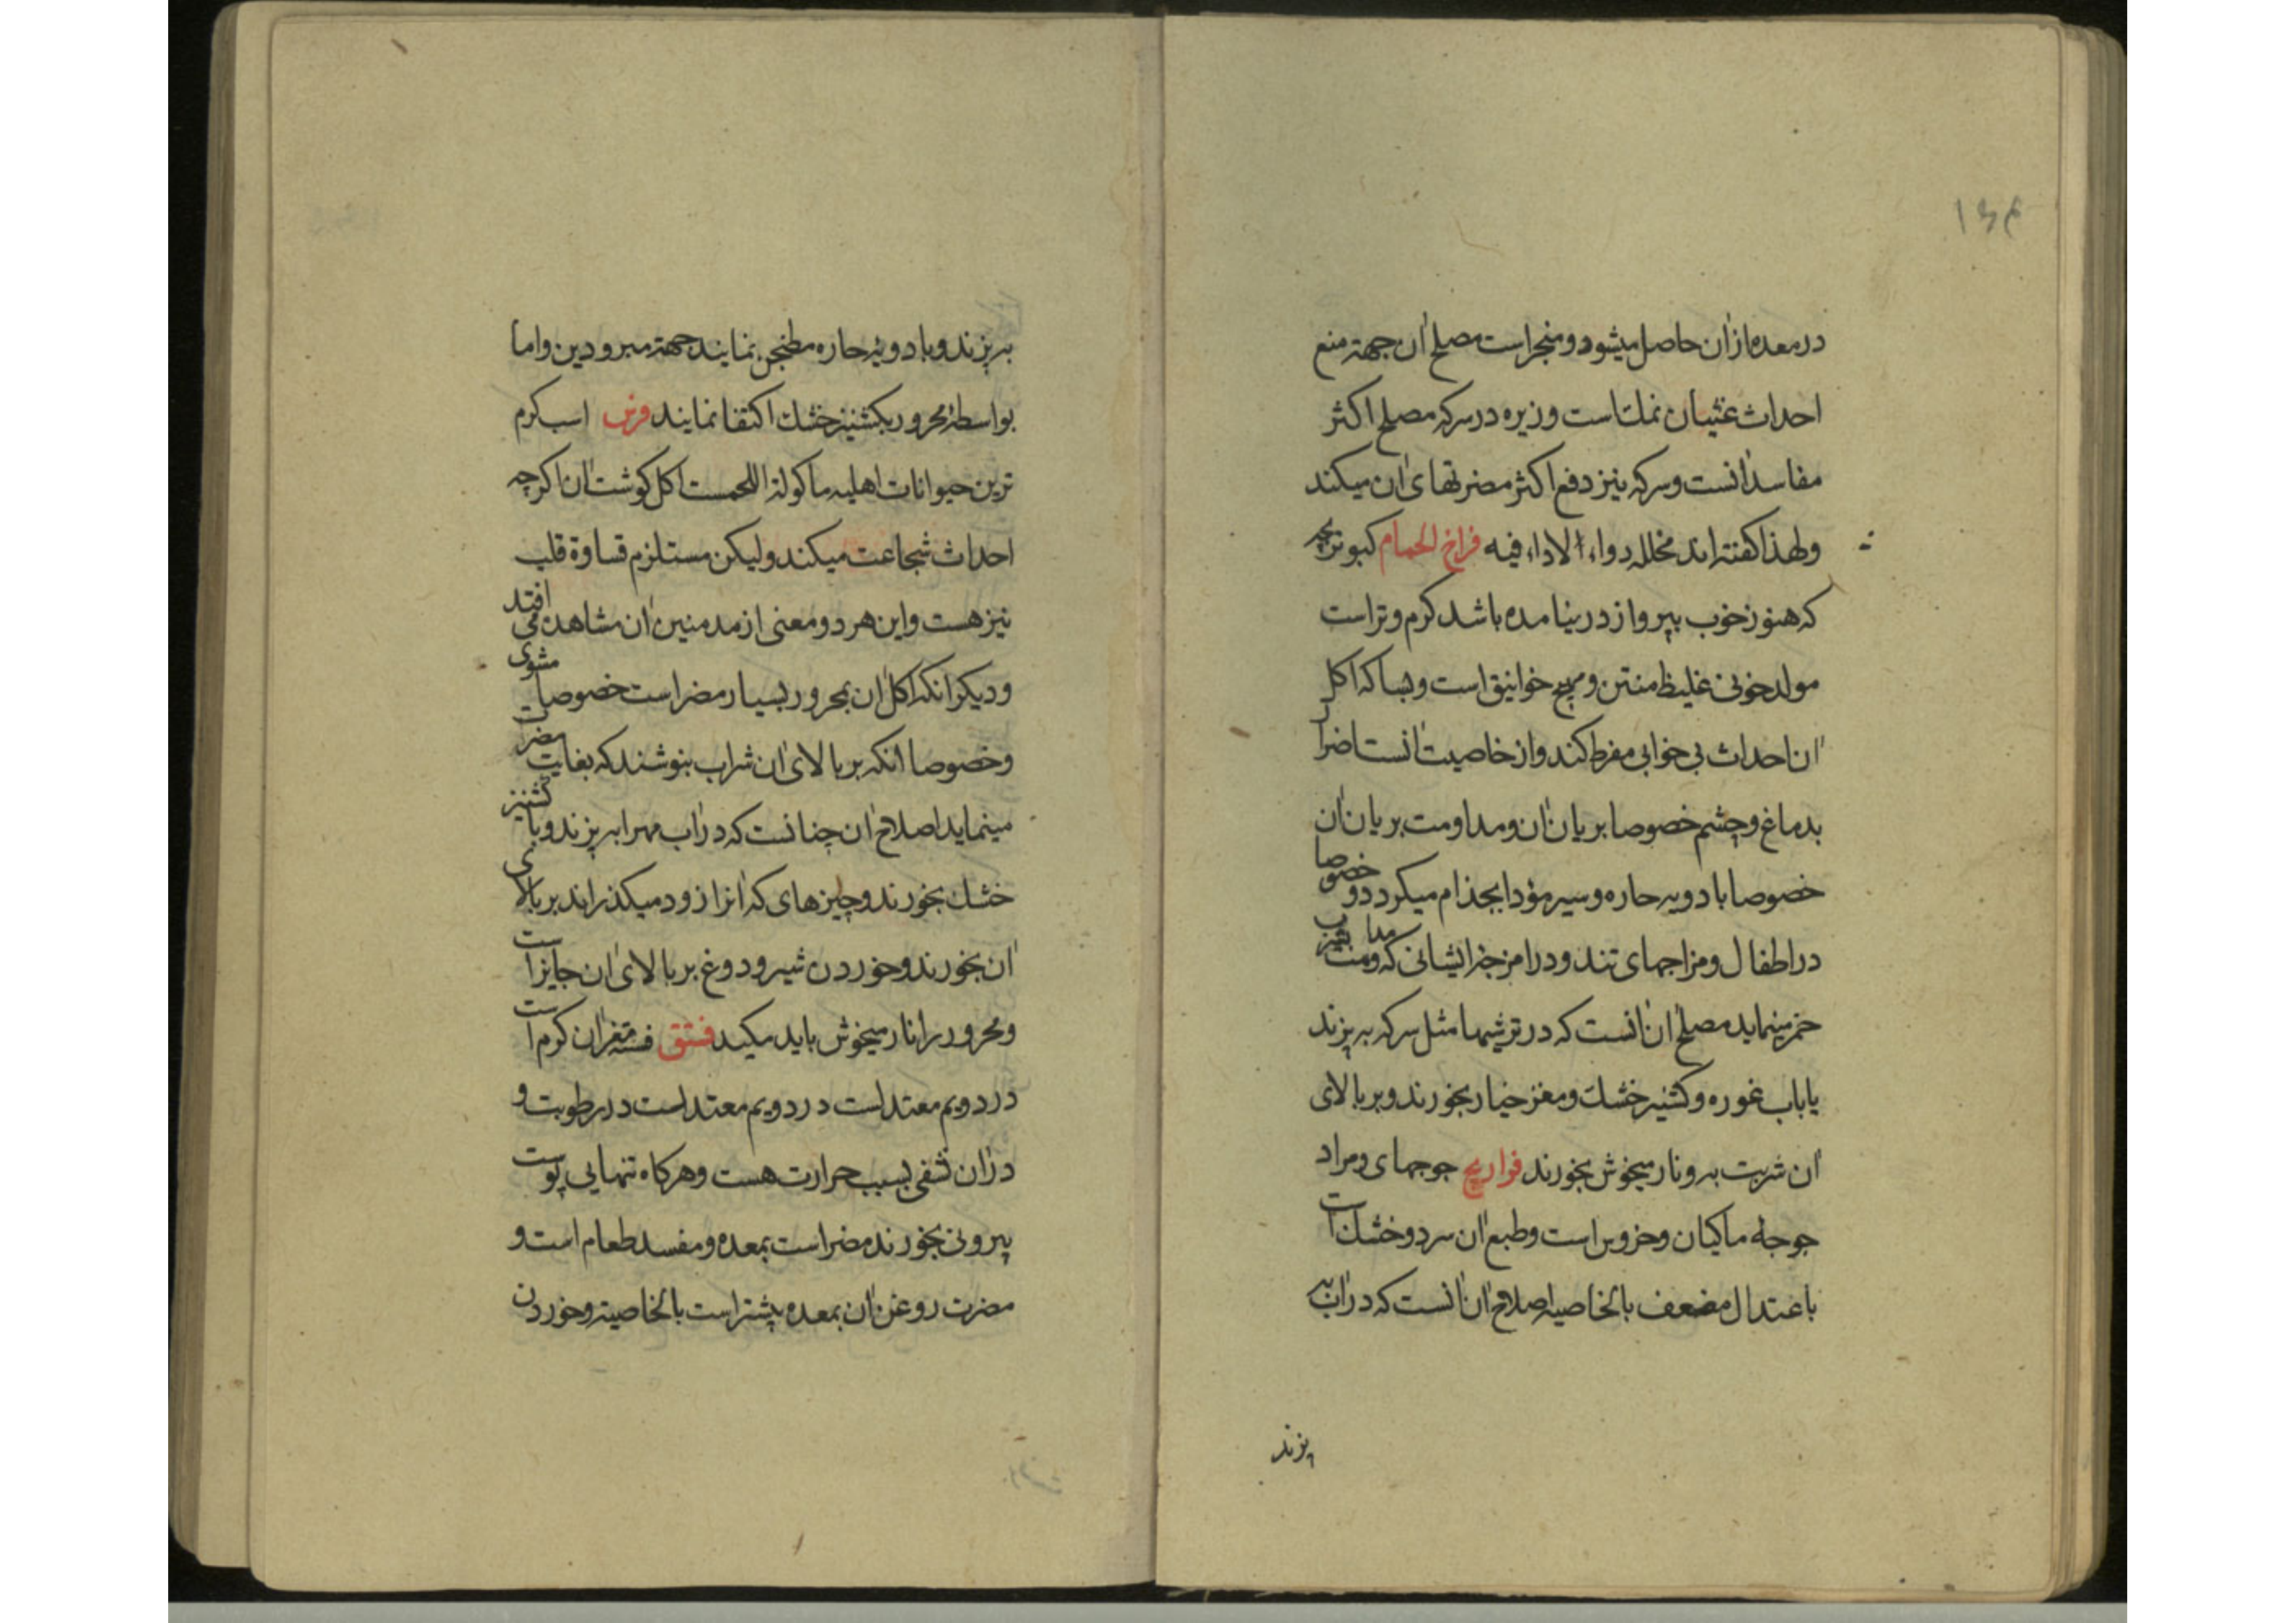 ۱۶۴
در معده ازان حاصل میشود و منجر است مصلح ان جهة منع
احداث غثیان نمکست و زیره در سرکه مصلح اکثر
مفاسد انست و سرکه نیز دفع اکثر مضرتهای ان میکند
ولهذا کفته اند مخلله دواء لا داء فیه فراخ الحمام کبوتر بچه
که هنوز خوب بپرواز در نیامده باشد کرم و تر است
مولد خونی غلیظ منتن و مهیج خوانیق است و بسا که اکل
ان احداث بی خوابی مفرط کند و از خاصیت انست اضرار
بدماغ و چشم خصوصا بریان ان و مداومت بریان ان
خصوصا بادویه حاره و سیر مؤدا بجذام میکردد و خصوصا
در اطفال و مزاجهای تند و در امزجه ایشانی که مداومت بشرب
خمر مینماید مصلح ان انست که در ترشیها مثل سرکه به پزند
یا باب غوره و کشنیز خشک و مغز خیار بخورند و بر بالای
ان شربت به و نار میخوش بخورند فراریج جوجهای و مراد
جوجه ماکیان و خروس است و طبع ان سرد و خشک است
باعتدال مضعف بالخاصیه اصلاح ان انست که در اب به
پزند
به پزند و با دویه حاره مطنجن نمایند جهة مبرودین و اما
بواسطه محرور بکشنیز خشک اکتفا نمایند فرس اسب کرم
ترین حیوانات اهلیه ماکولة اللحمست اکل کوشت ان اکرچه
احداث شجاعت میکند ولیکن مستلزم قساوة قلب
نیز هست و این هر دو معنی از مدمنین ان مشاهده می افتد
و دیکر انکه اکل ان بمحرور بسیار مضر است خصوصا مشوی
و خصوصا انکه بر بالای ان شراب بنوشند که بغایت مضرت
مینماید اصلاح ان چنانست که در اب مهرا به پزند و با کشنیز
خشک بخورند و چیزهای که انرا زود میکذراند بر بالای
ان بخورند و خوردن شیر و دوغ بر بالای ان جایز است
و محرور را نار میخوش باید مکید فستق فسته مغز ان کرم است
در دویم معتدلست در دویم معتدلست در رطوبت و
دران نشفی بسبب حرارت هست و هرکاه تنهایی پوست
بیرونی بخورند مضر است بمعده و مفسد طعام است و
مضرت روغن ان بمعده بیشتر است بالخاصیة و خوردن